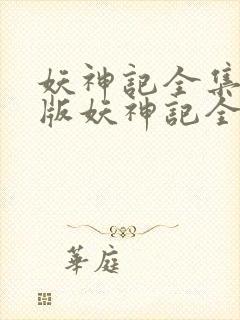 妖神記全集
版妖神記全
華庭